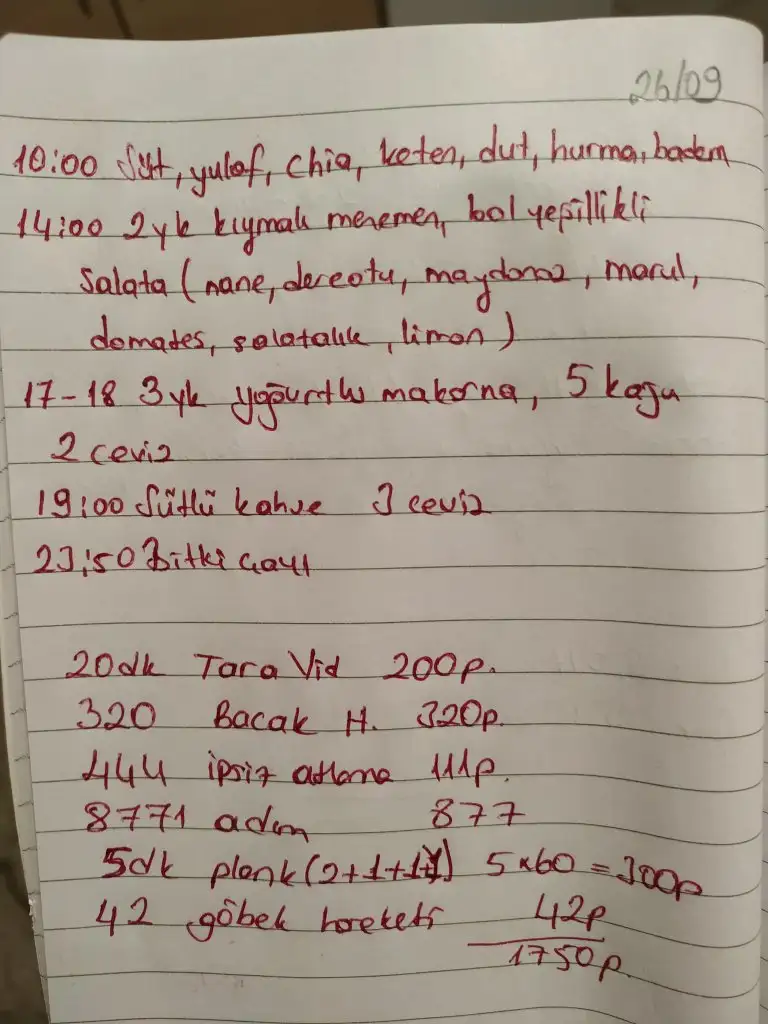 26/09
10:00 Süt, yulaf, chia, keten, dut, hurma, badem
14:00 2 yk kıymalı menemen, bol yeşillikli
salata (nane, dereotu, maydonoz, marul,
domates, salatalık, limon)
17-18 3 yk yoğurtlu makarna, 5 kaju
2 ceviz
19:00 Sütlü kahve 3 ceviz
23:50 Bitki çayı
20dk Tara Vid 200p.
320 Bacak H. 320p.
444 ipsiz atlama 111p.
8771 adım 877
5dk plank (2+1+1+1) 5x60=300p
42 göbek hareketi 42p
1750p.